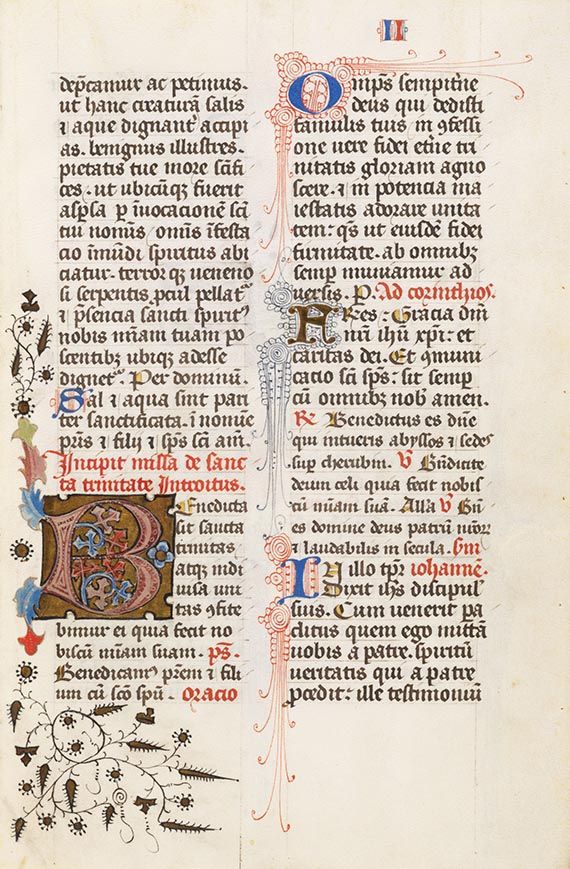 II
dep̄camur ac petimus.
ut hanc creaturā salis
⁊ aque dignant᷑ accipi
as. benignus illustres.
pietatis tue more sc̄ifi
ces. ut ubicūqꝫ fuerit
asp̄sa ꝑ īuocacionē sc̄i
tui nōnis omīs īfesta
cio īmūdi spiritus abi
ciatur. terrorqꝫ ueneno
si serpentis ꝓcul pellat᷑
⁊ p̄sencia sancti spirit᷒
nobis mīam tuam po
scentibꝫ ubiqꝫ adesse
dignet᷑. Per dominū.
Sal ⁊ aqua sint pari
ter sanctificata. ī nomīe
pr̄is ⁊ filij ⁊ sp̄s sc̄i am̄.
Incipit missa de sanc
ta trinitate Introitus.
Benedicta
sit sancta
trinitas
atqꝫ indi
uisa uni
tas ꝯfite
bimur ei quia fecit no
biscū mīam suam. ps̄.
Benedicam᷒ pr̄em ⁊ fili
um cū sc̄o sp̄u. oracio
Omīps sempit̄ne
deus qui dedisti
famulis tuis in ꝯfessi
one uere fidei et̄ne tri
nitatis gloriam agno
scere. ⁊ in potencia ma
iestatis adorare unita
tem: qs̄ ut eiusdē fidei
firmitate. ab omnibꝫ
semꝑ muniamur ad
uersis. P. Ad corinthios.
FRes: Gracia dn̄i
nr̄i ihū xp̄i: et
caritas dei. Et ꝯmuni
cacio sc̄i sp̄s: sit semꝑ
cū omnibꝫ nob amen.
R̄ Benedictus es dn̄e
qui intueris abyssos ⁊ sedes
suꝑ cherubim. V̄ Bn̄dicite
deum celi quia fecit nobis
cū mīam suam. All̄a V̄ Bn̄
es domine deus patrū nr̄or̄
⁊ laudabilis in secula. sm̄
IN illo tp̄r iohannē.
Dixit ihs discipul᷒
suis. Cum venerit pa
clitus quem ego mittā
uobis a patre. spiritū
ueritatis qui a patre
ꝓcedit: ille testimoniū